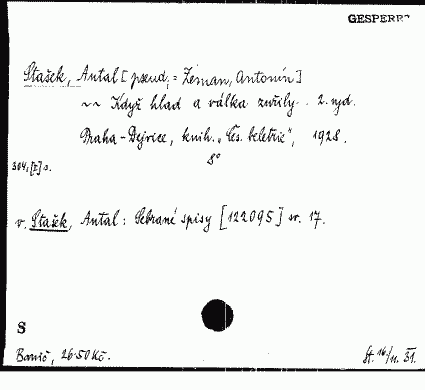 GESPERRT
Stašek, Antal [pseud. = Zeman, Antonín]
~~ Když hlad a válka zuřily. 2. vyd.
Praha-Dejvice, knih. „Čes. beletrie", 1928.
8°
304, [I] s.
v. Stašek, Antal: Sebrané spisy [122095] sv. 17.
S
26·50 Kč.
31.